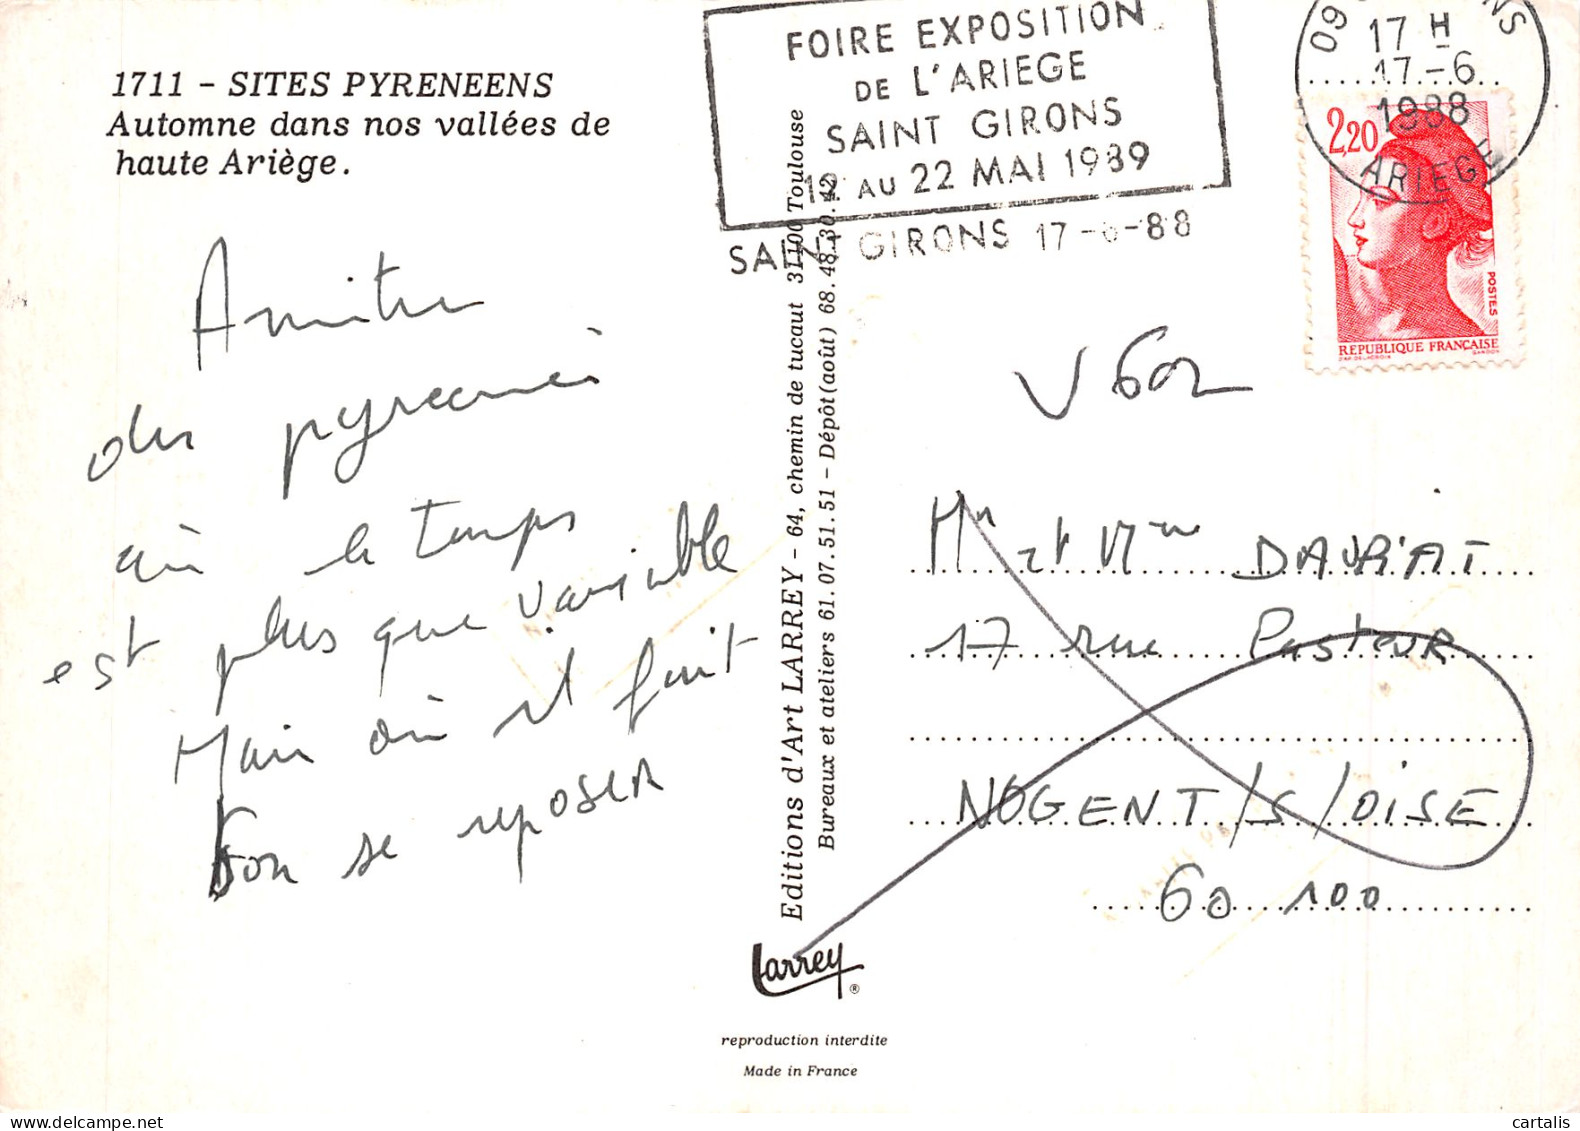 1711 - SITES PYRENEENS
Automne dans nos vallées de
haute Ariège.
FOIRE EXPOSITION
DE L'ARIEGE
SAINT GIRONS
12 AU 22 MAI 1989
SAINT GIRONS 17-6-88
09
17 H
17-6
1988
ARIEGE
2,20
POSTES
REPUBLIQUE FRANÇAISE
Amitié
des pyrenneés
où le temps
est plus que variable
Mais où il fait
bon se reposer
Editions d'Art LARREY - 64, chemin de tuccaut 31100 Toulouse
Bureaux et ateliers 61.07.51.51 - Dépôt(août) 68.48.30.42
V602
Mr et Mme DAURIAT
17 rue Pasteur
NOGENT/S/OISE
60 100
Larrey ®
reproduction interdite
Made in France
cartalis